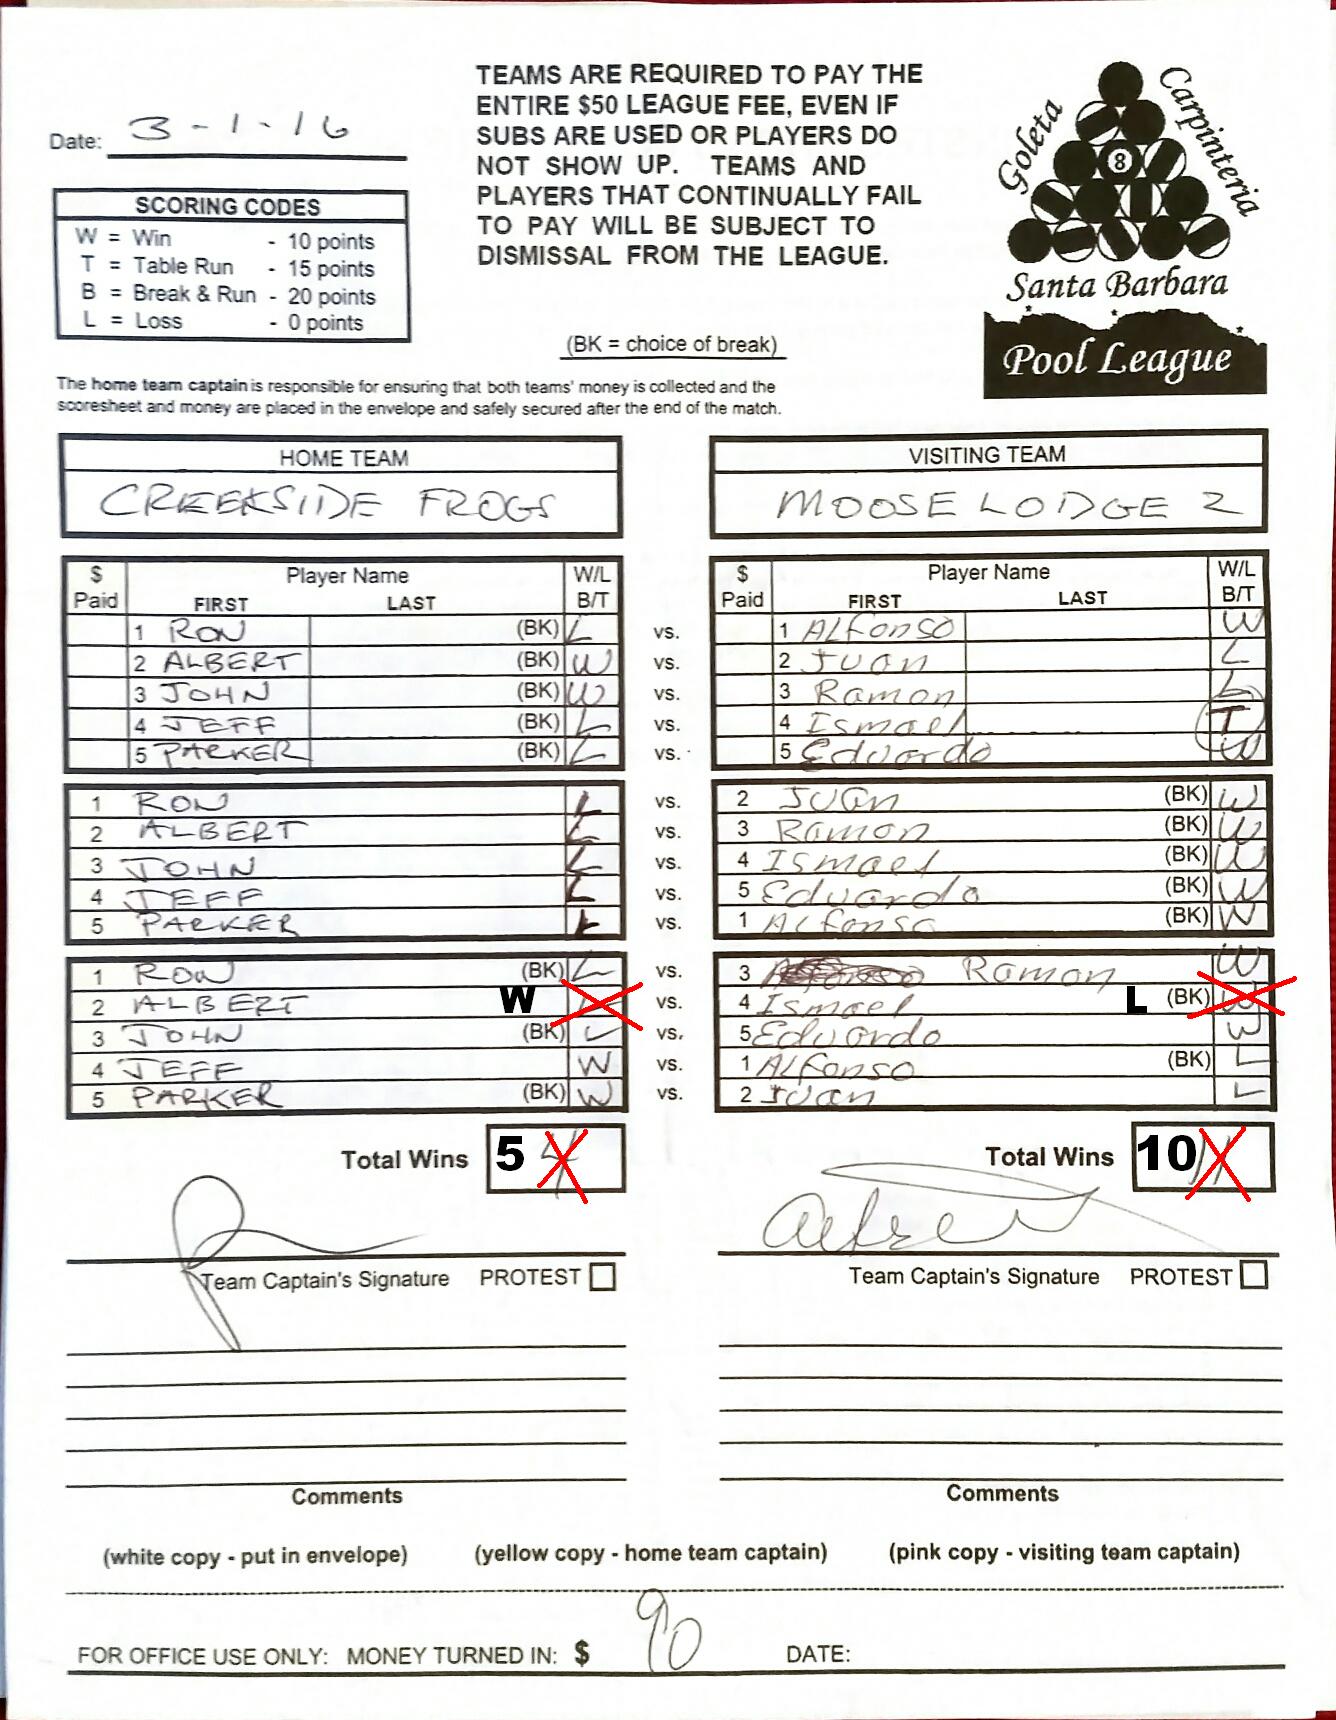 Date: 3-1-16
TEAMS ARE REQUIRED TO PAY THE
ENTIRE $50 LEAGUE FEE, EVEN IF
SUBS ARE USED OR PLAYERS DO
NOT SHOW UP. TEAMS AND
PLAYERS THAT CONTINUALLY FAIL
TO PAY WILL BE SUBJECT TO
DISMISSAL FROM THE LEAGUE.
Goleta
Carpinteria
8
Santa Barbara
Pool League
SCORING CODES
W = Win - 10 points
T = Table Run - 15 points
B = Break & Run - 20 points
L = Loss - 0 points
(BK = choice of break)
The home team captain is responsible for ensuring that both teams' money is collected and the
scoresheet and money are placed in the envelope and safely secured after the end of the match.
HOME TEAM VISITING TEAM
CREEKSIDE FROGS MOOSE LODGE 2
$ Paid Player Name FIRST LAST W/L B/T $ Paid Player Name FIRST LAST W/L B/T
1 RON (BK) L vs. 1 ALFonso W
2 ALBERT (BK) W vs. 2 JUan L
3 JOHN (BK) W vs. 3 Ramon L
4 JEFF (BK) L vs. 4 Ismael T
5 PARKER (BK) L vs. 5 Eduardo W
1 RON L vs. 2 JUan (BK) W
2 ALBERT L vs. 3 Ramon (BK) W
3 JOHN L vs. 4 Ismael (BK) W
4 JEFF L vs. 5 Eduardo (BK) W
5 PARKER L vs. 1 ALfonso (BK) W
1 RON (BK) L vs. 3 Ramon W
2 ALBERT W vs. 4 Ismael L (BK)
3 JOHN (BK) L vs. 5 Eduardo W
4 JEFF W vs. 1 ALfonso (BK) L
5 PARKER (BK) W vs. 2 Juan L
Total Wins 5 4 Total Wins 10 11
Team Captain's Signature PROTEST Team Captain's Signature PROTEST
Comments Comments
(white copy - put in envelope) (yellow copy - home team captain) (pink copy - visiting team captain)
FOR OFFICE USE ONLY: MONEY TURNED IN: $ 90 DATE: